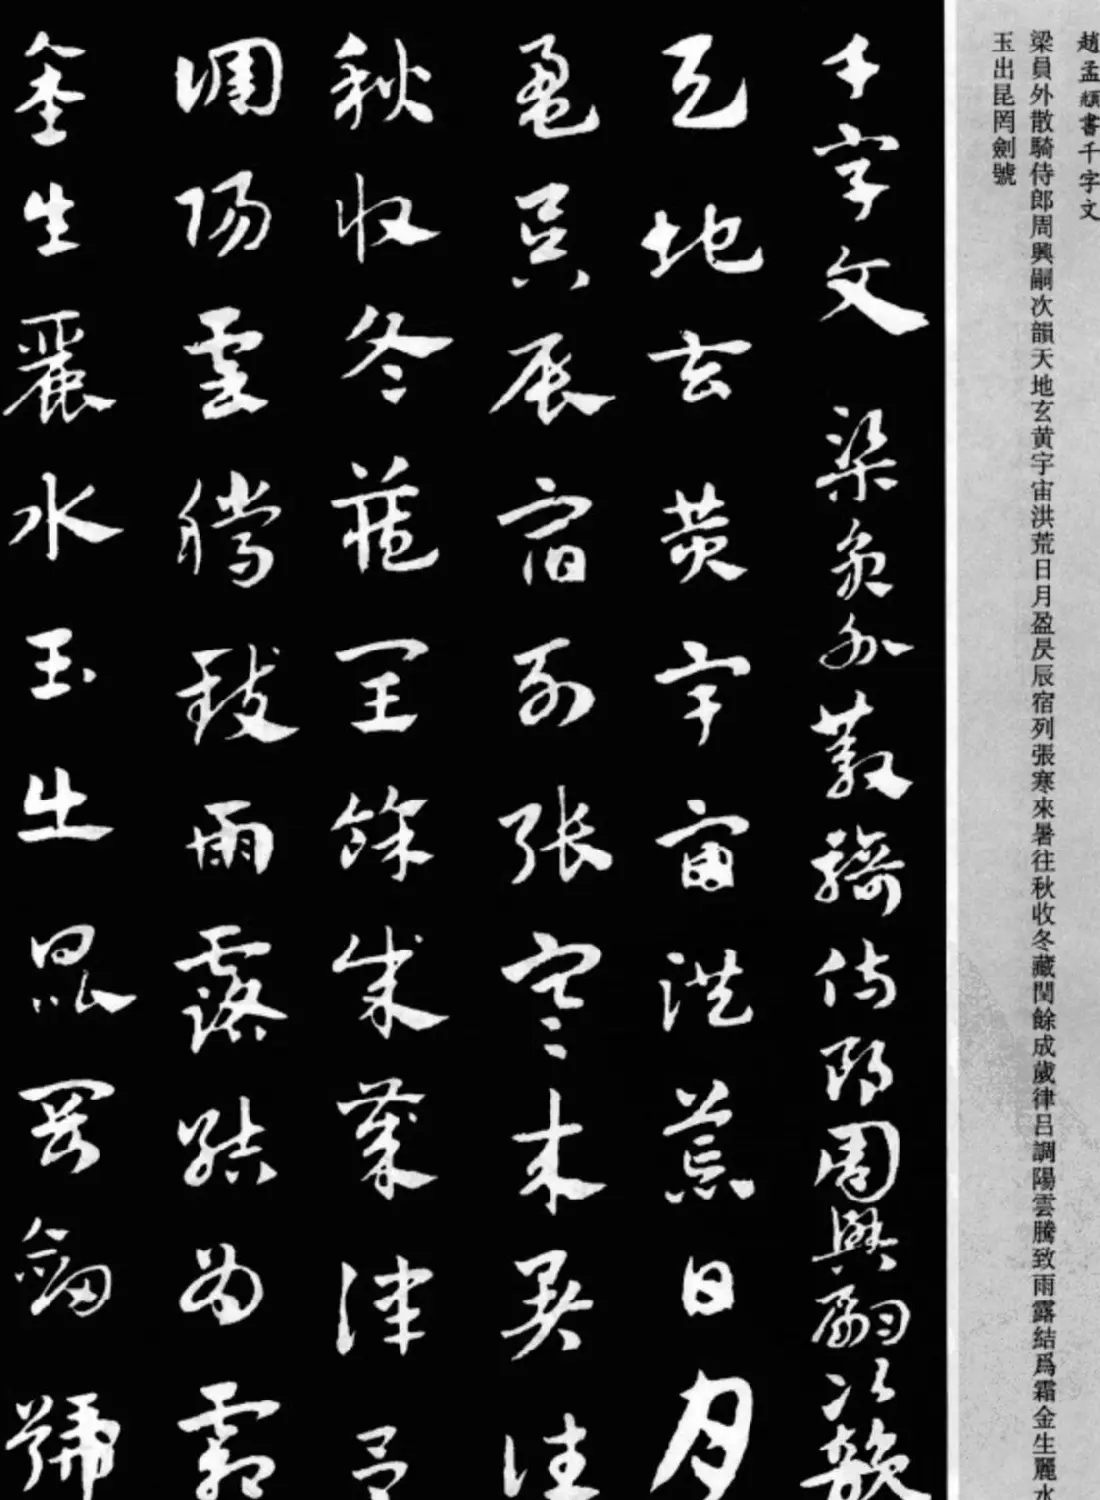 趙孟頫書千字文
梁員外散騎侍郎周興嗣次韻天地玄黄宇宙洪荒日月盈昃辰宿列張寒來暑往秋收冬藏閏餘成歲律吕調陽雲騰致雨露結爲霜金生麗水
玉出昆罔劍號
千字文 梁員外散騎侍郎周興嗣次韻
天地玄黄宇宙洪荒日月
盈昃辰宿列張寒來暑往
秋收冬藏閏餘成歲律吕
調陽雲騰致雨露結為霜
金生麗水玉出崐罡劍號